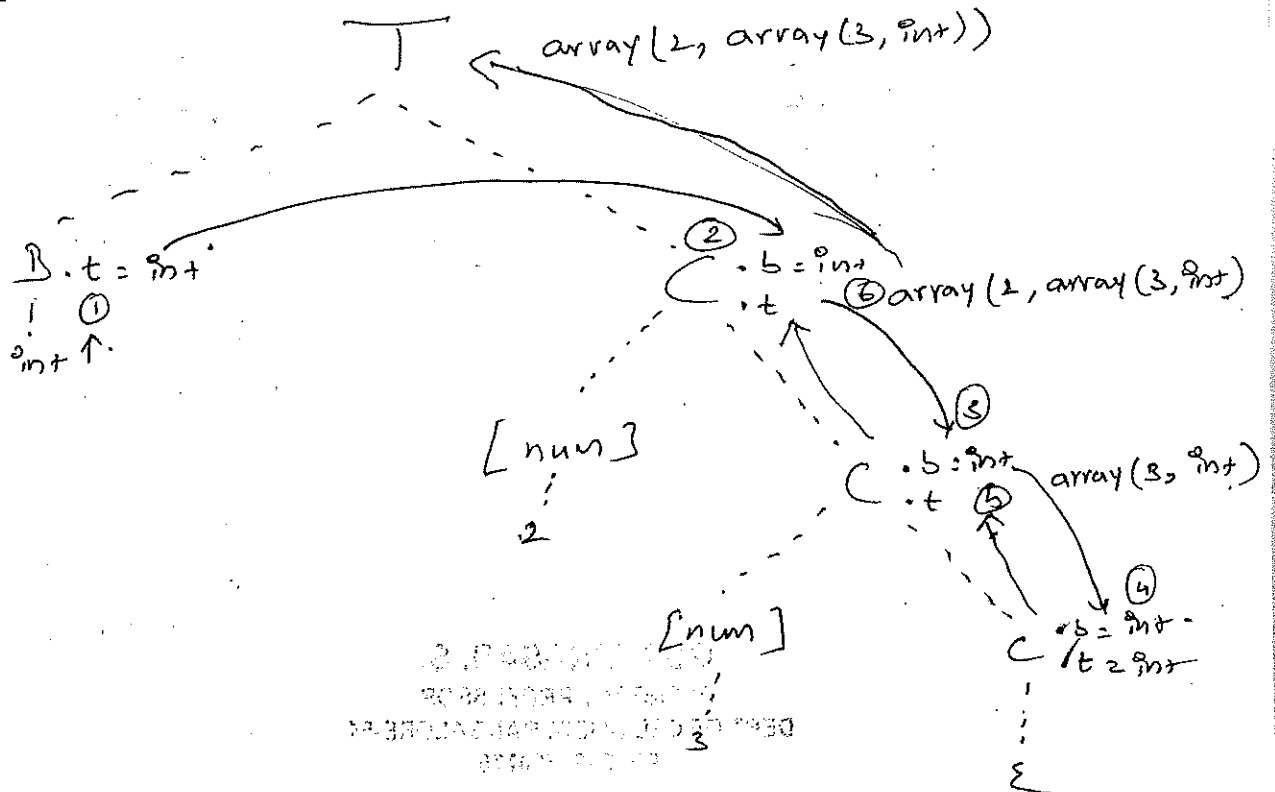 T
array(2, array(3, int))
B.t = int
①
int
② .b = int
C .t ⑥ array(2, array(3, int)
[num]
2
③
.b = int
C .t ⑤ array(3, int)
[num]
3
④
.b = int
C .t = int
ε